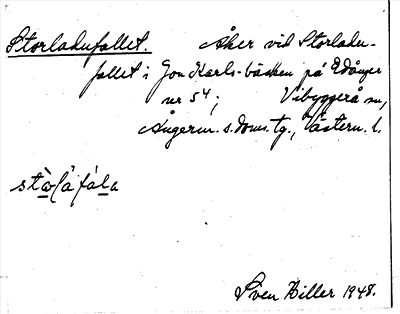 Storladufallet. Åker vid Storladu-
fallet i Jon Karls-bäcken på Edånger
nr 54; Vibyggerå sn,
Ångerm. s. doms. tg., Västern. l.
Sven Hiller 1948.